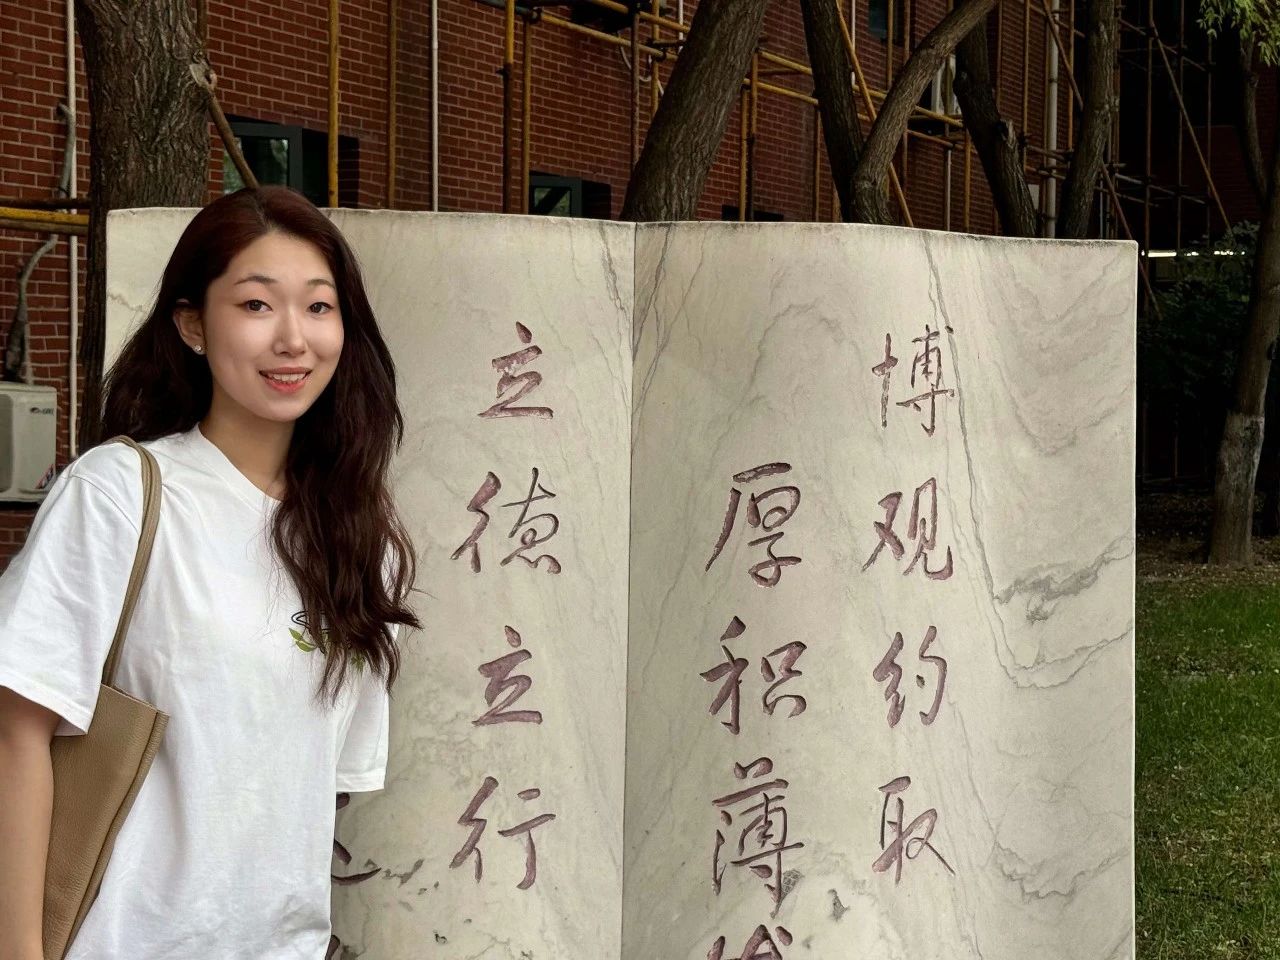 博观约取
厚积薄
立德立行